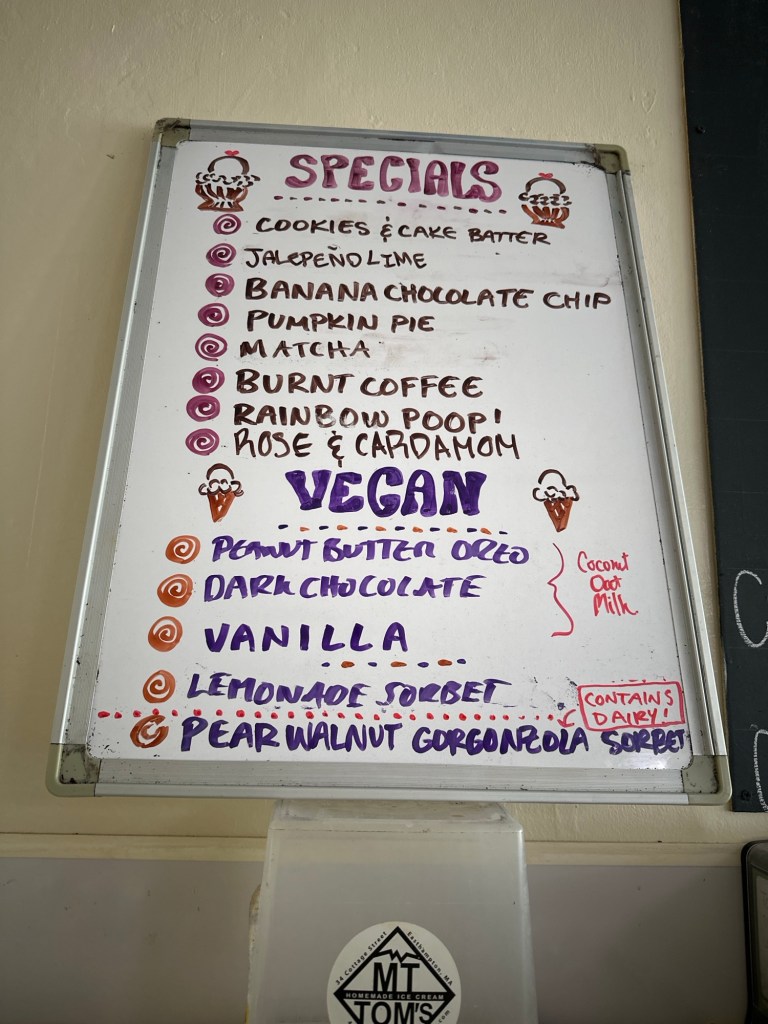 SPECIALS
COOKIES & CAKE BATTER
JALEPEÑO LIME
BANANA CHOCOLATE CHIP
PUMPKIN PIE
MATCHA
BURNT COFFEE
RAINBOW POOP!
ROSE & CARDAMOM
VEGAN
PEANUT BUTTER OREO
DARK CHOCOLATE
VANILLA
Coconut
Oat
Milk
LEMONADE SORBET
CONTAINS
DAIRY!
PEAR WALNUT GORGONZOLA SORBET
34 Cottage Street
Easthampton, MA
MT
HOMEMADE ICE CREAM
TOM'S